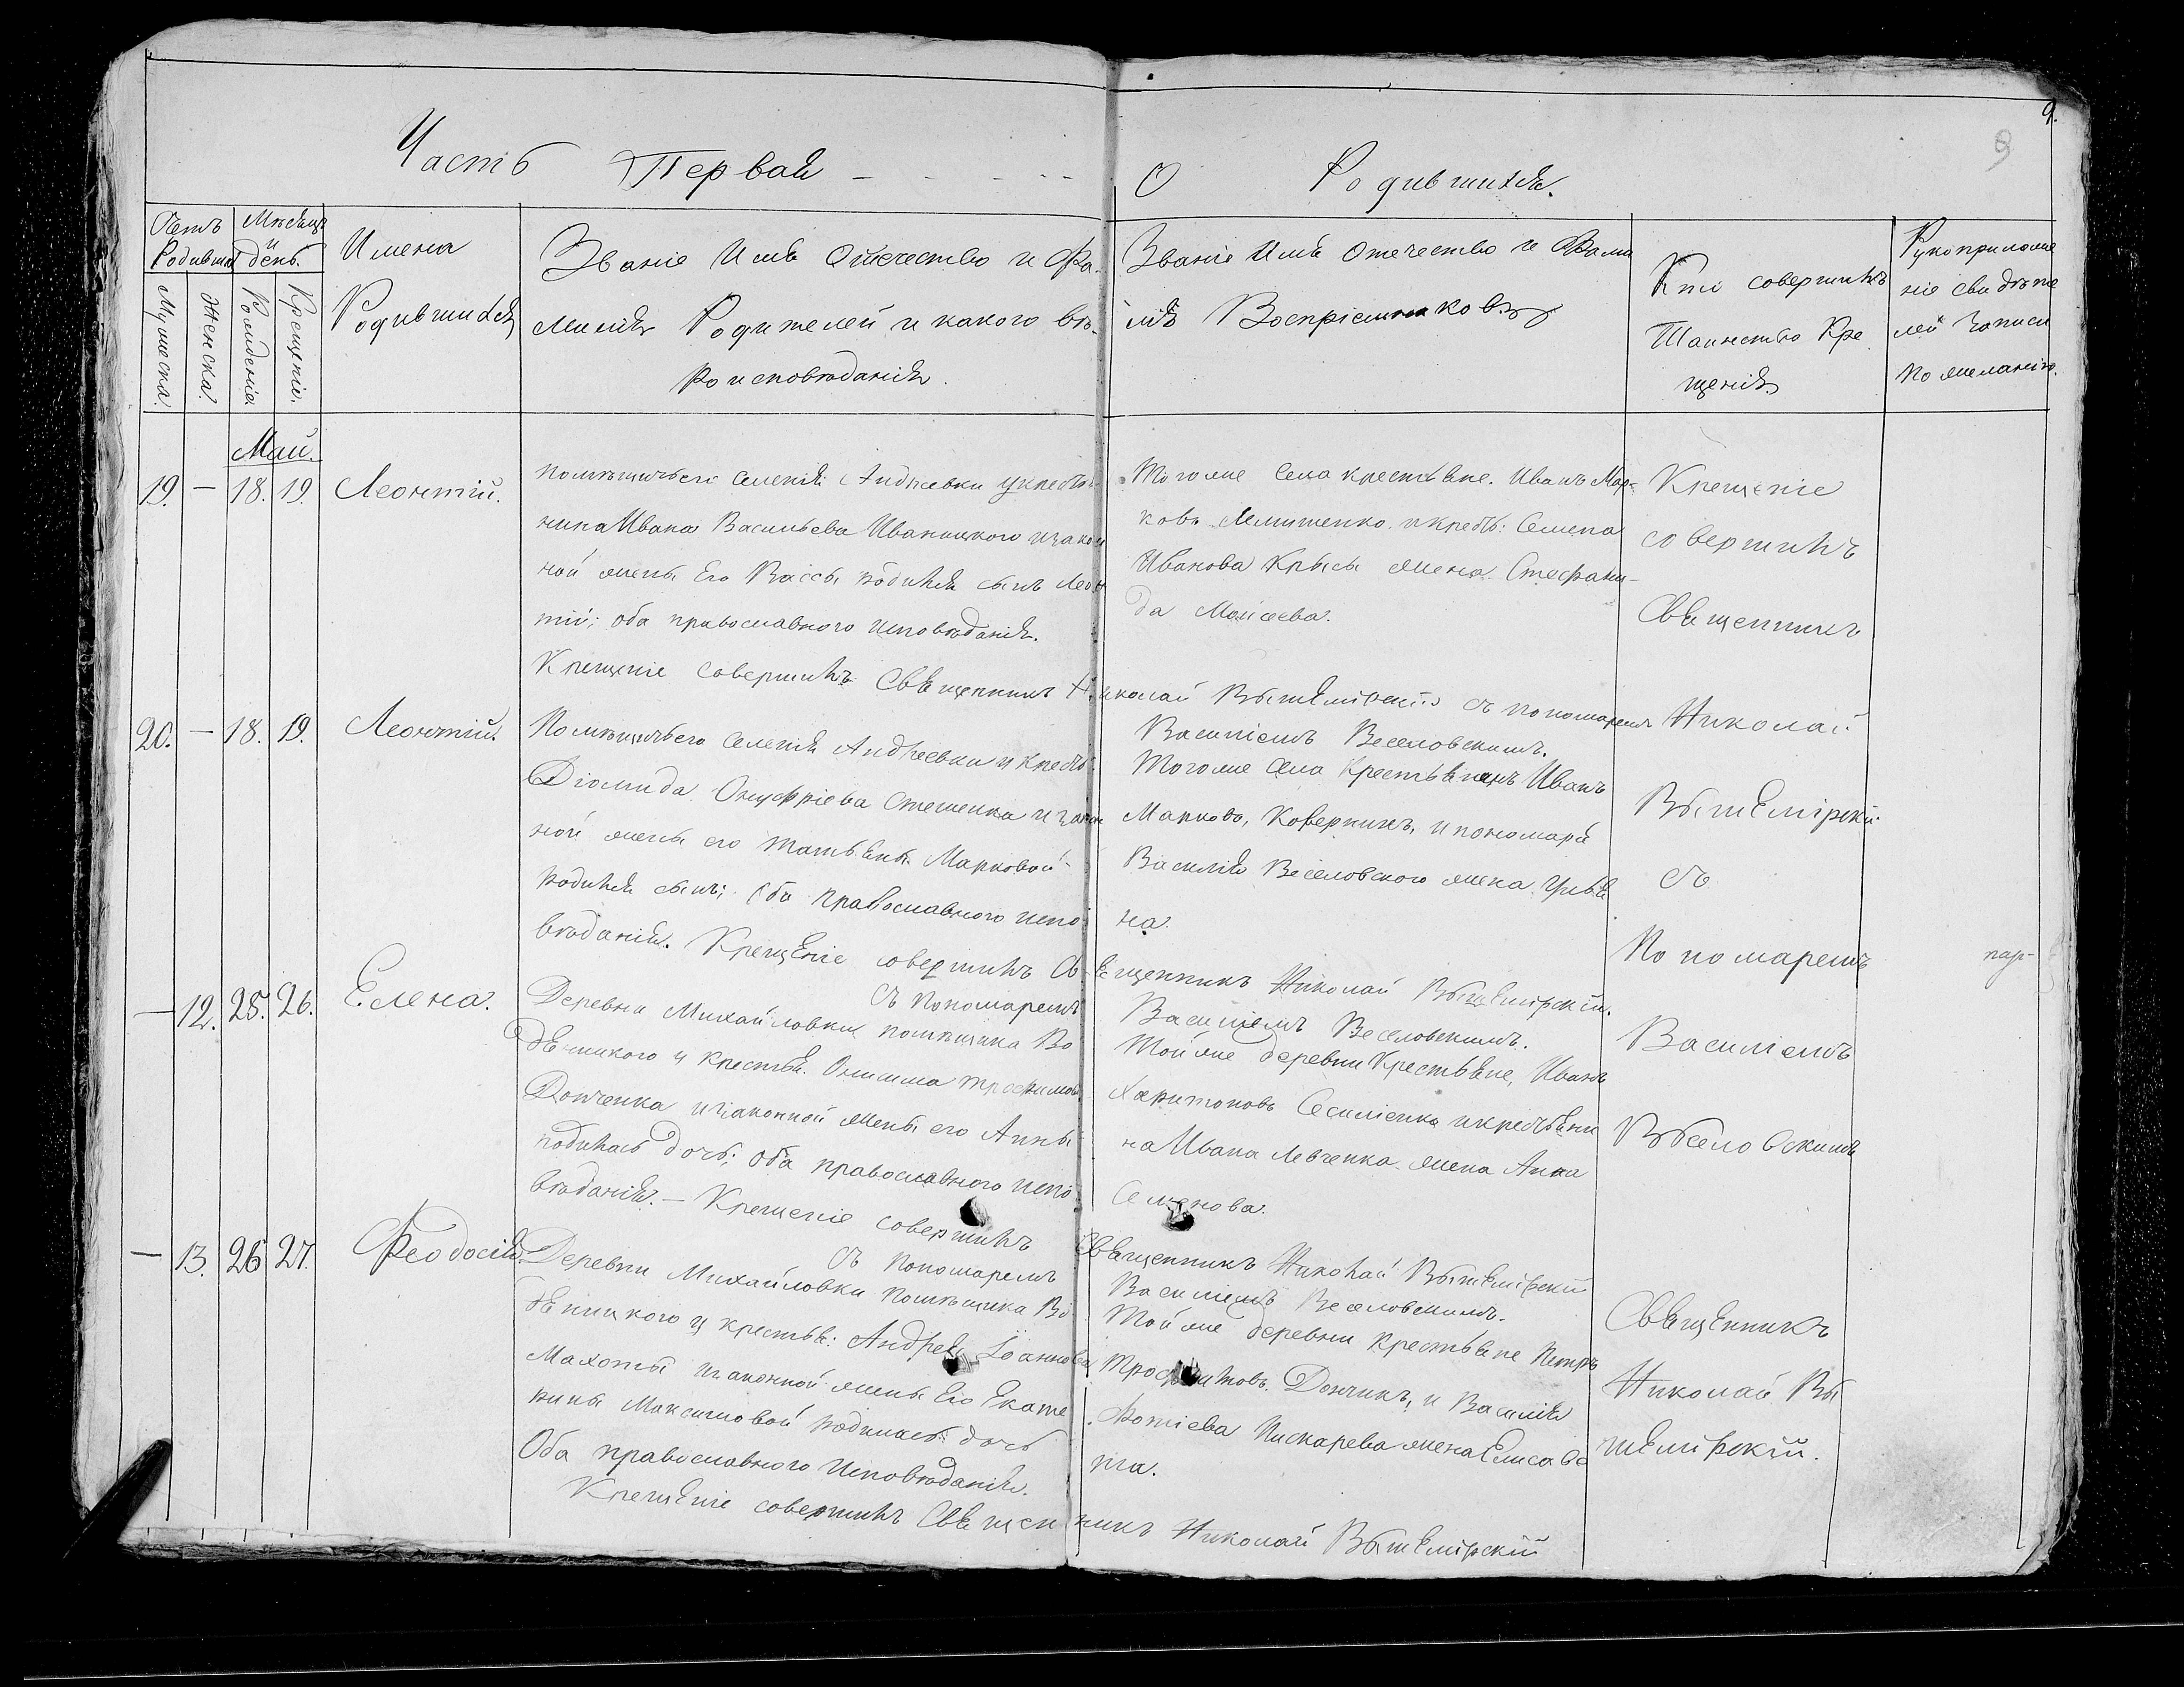 9.
9
Часть Первая - - - -
О Родившихся.
Счетъ Родивших
Мѣсяцъ и день.
Имена Родившихся
Званіе Имя Отечество и Фа-
милія Родителей и какого вѣ-
роисповѣданія.
Званіе Имя Отечество и Фами
лія Воспріемниковъ
Кто совершилъ
Таинство Кре
щенія
Рукоприложе
ніе свидѣте
лей Записи
по желанію.
Мужеска.
Женска.
Рожденія
Крещенія.
Май.
19. — 18. 19. Леонтій.
помѣщичьего селенія Андреевки у крестья
нина Ивана Васильева Иваницкого и закон
ной жены Его Вассы родился сынъ Леон
тій; оба православного исповѣданія.
Крещеніе совершилъ Священникъ Николай Вышемірскій съ пономаремъ
Василіемъ Веселовскимъ.
Того же Села крестьяне. Иванъ Мар-
ковъ и крестья: Семена
Иванова Крысы жена Стефани-
да Моисеева.
20. — 18. 19. Леонтій.
Помѣщичьего селенія Андреевки у крестья
Діомида Онуфріева Стешенка и закон
ной жены его Татьяны Марковой
родился сынъ; Оба православного испо
вѣданія. Крещеніе совершилъ Священникъ Николай Вышемірскій.
съ Пономаремъ Василіемъ Веселовскимъ.
Того же села Крестьянинъ Иванъ
Марковъ, Коверникъ, и пономаря
Василія Веселовского жена Улья
на.
— 12. 25. 26. Елена.
Деревни Михайловки помѣщика Во
дяницкого у крестья. Онисима Трофимова
Донченка и законной жены его Анны
родилась дочь; оба православного испо
вѣданія. — Крещеніе совершилъ Священникъ Николай Вышемірскій
съ Пономаремъ Василіемъ Веселовскимъ.
Той же деревни Крестьяне, Иванъ
Харитоновъ и крестьяни
на Ивана Левченка жена Анна
Семенова.
— 13. 26 27. Феодосія.
Деревни Михайловки Помѣщика Во
дяницкого у крестья: Андрея Іоаннова
Махоты и законной жены Его Екате
рины Максимовой родилась дочь
Оба православного Исповѣданія.
Крещеніе совершилъ Священникъ Николай Вышемірскій
Той же деревни Крестьяне Петръ
Трофимовъ Дончикъ, и Василія
Фотіева Пискарева жена Елисаве
та.
Крещеніе
совершилъ
Священникъ
Николай
Вышемірскій
съ
Пономаремъ
Василіемъ
Веселовскимъ
Священникъ
Николай Вы
шемірскій.